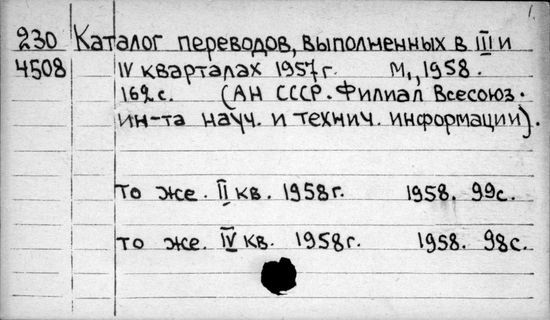 1.
230 Каталог переводов, выполненных в III и
4508 IV кварталах 1957г. М., 1958.
162с. (АН СССР. Филиал Всесоюз.
ин-та науч. и технич. информации).
то же. II кв. 1958г. 1958. 99с.
то же. IV кв. 1958г. 1958. 98с.